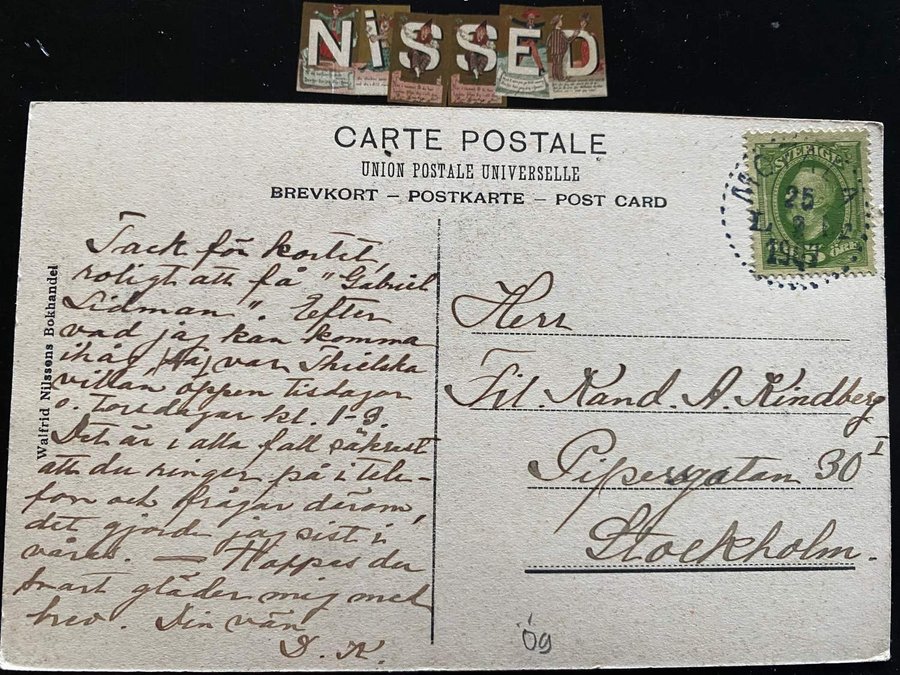 NISSED
CARTE POSTALE
UNION POSTALE UNIVERSELLE
BREVKORT – POSTKARTE – POST CARD
SVERIGE
ÖRE
25
Walfrid Nilssons Bokhandel
Tack för kortet,
roligt att få "Gabriel
Lidman". Efter
vad jag kan komma
ihåg var Thielska
villan öppen tisdagar
o. Torsdagar kl. 1-3.
Det är i alla fall säkrast
att du ringer på i tele-
fon och frågar därom,
det gjorde jag sist i
våras. — Hoppas du
snart gläder mig med
brev. Din vän
D. K.
Herr
Fil. Kand. A. Kindberg
Pipersgatan 30 I
Stockholm.
Ög